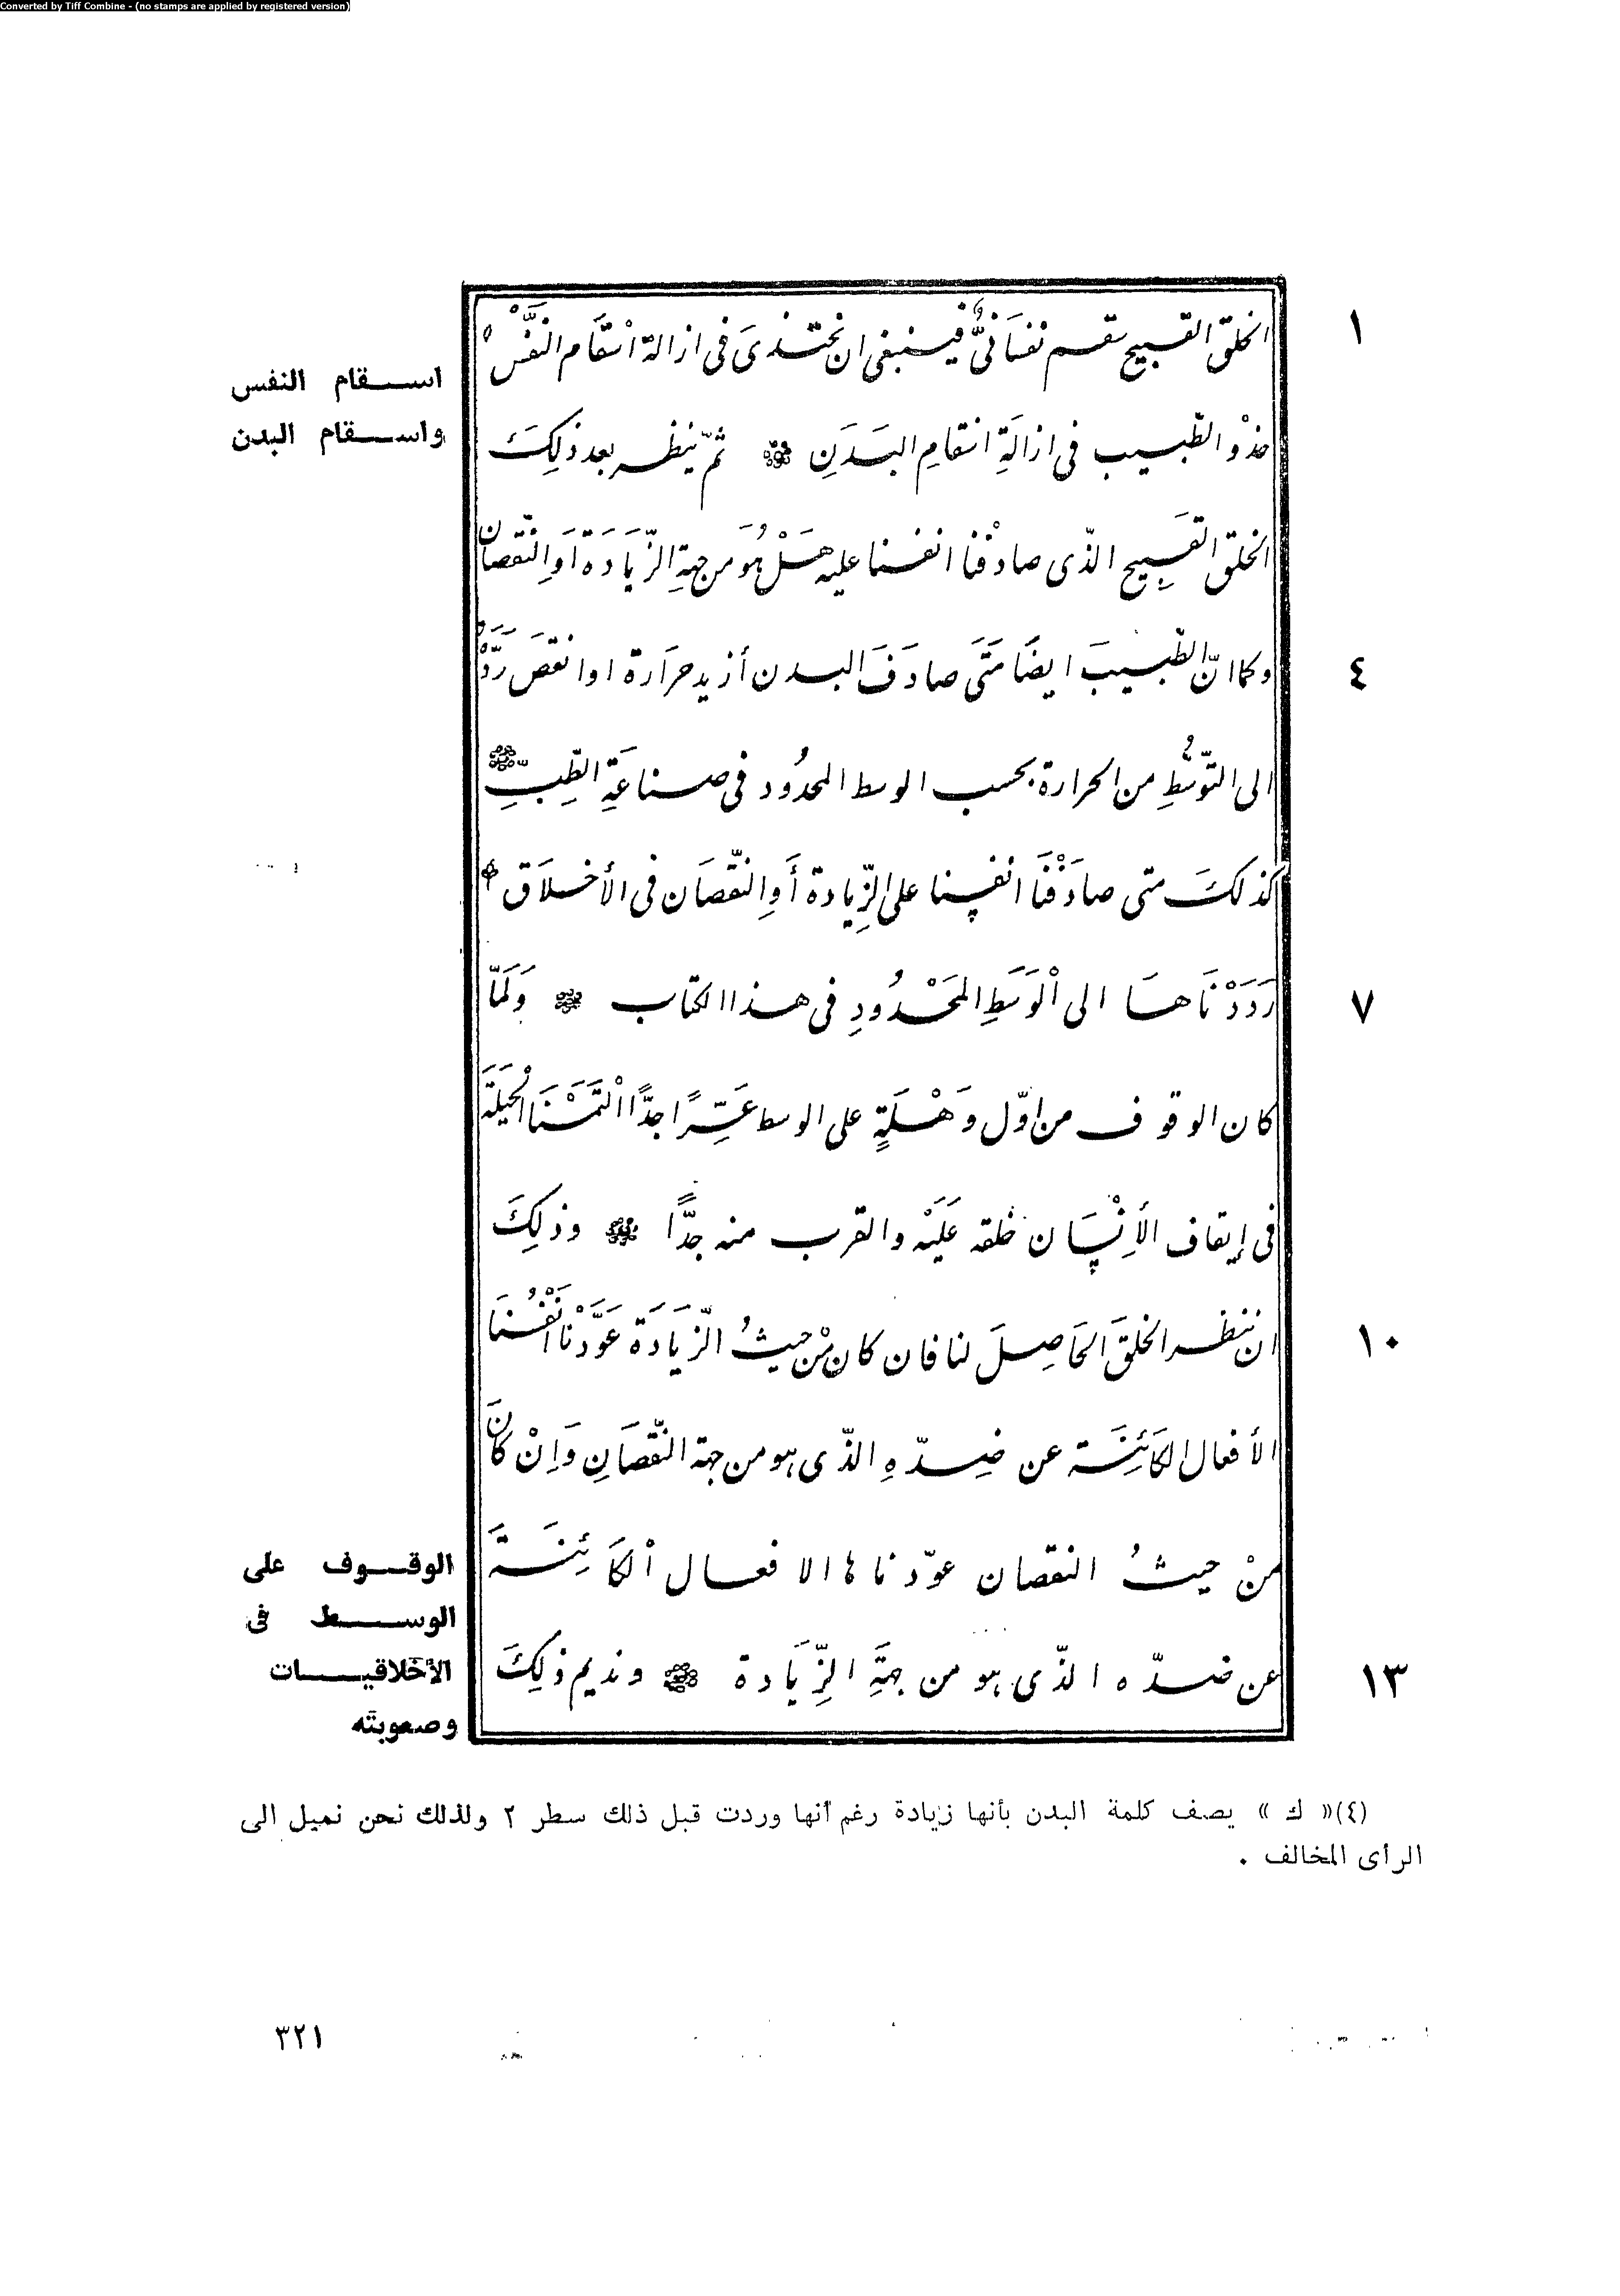 Converted by Tiff Combine - (no stamps are applied by registered version)
١
الخلق القبيح سقم نفسَانىٌّ فينبغى ان نحتذىَ فى ازالة اسْقَام النَّفْسِ
اسقام النفس
واسقام البدن
حذْو الطّبيب فى ازالَةِ اسقامِ البَدَنِ ثمّ ينظر بعد ذلِكَ
الخلق القَبِيح الذّى صادفْنا انفسنا عليه هَلْ هُوَ من جهةِ الزّيَادَة اَوِ النّقصان
٤
وكما انّ الطّبيبَ ايضًا مَتَى صادَفَ البدن أزيد حرَارة او انقصَ رَدَّهُ
الى التّوسُّطِ من الحرارة بحسب الوسط المحدُود فى صناعَةِ الطِّبِ
كذلكَ متى صادَفْنَا انفسنا على الزِّيادة أَوِ النّقصَان فى الأخلَاق
٧
رَدَدْنَاهَا الى الْوَسَطِ المَحْدُودِ فى هذا الكتاب وَلَمّا
كان الوقوف من اوّل وَهْلَةٍ على الوسط عَسِرًا جدًّا الْتَمَسْنَا الْحيلَةَ
فى إيقاف الأِنْسَان خلقه عَلَيْه والقرب منه جدًّا وذلِكَ
١٠
ان ننظر الخلقَ الحَاصِلَ لنا فان كان منْ حيثُ الزّيَادَة عَوَّدْنَا انْفُسَنَا
الأفعال الكَائِنَة عن ضِدّهِ الذّى هو من جهة النّقصَانِ وَاِنْ كانَ
منْ حيثُ النقصان عوّدناها الافعال الْكَائِنَةَ
الوقوف على
الوسط فى
الأخلاقيات
وصعوبته
١٣
عن ضدّه الذّى هو من جهَةِ الزِّيَادة ونديم ذلِكَ
(٤) « ك » يصف كلمة البدن بأنها زيادة رغم أنها وردت قبل ذلك سطر ٢ ولذلك نحن نميل الى
الرأى المخالف .
٣٢١